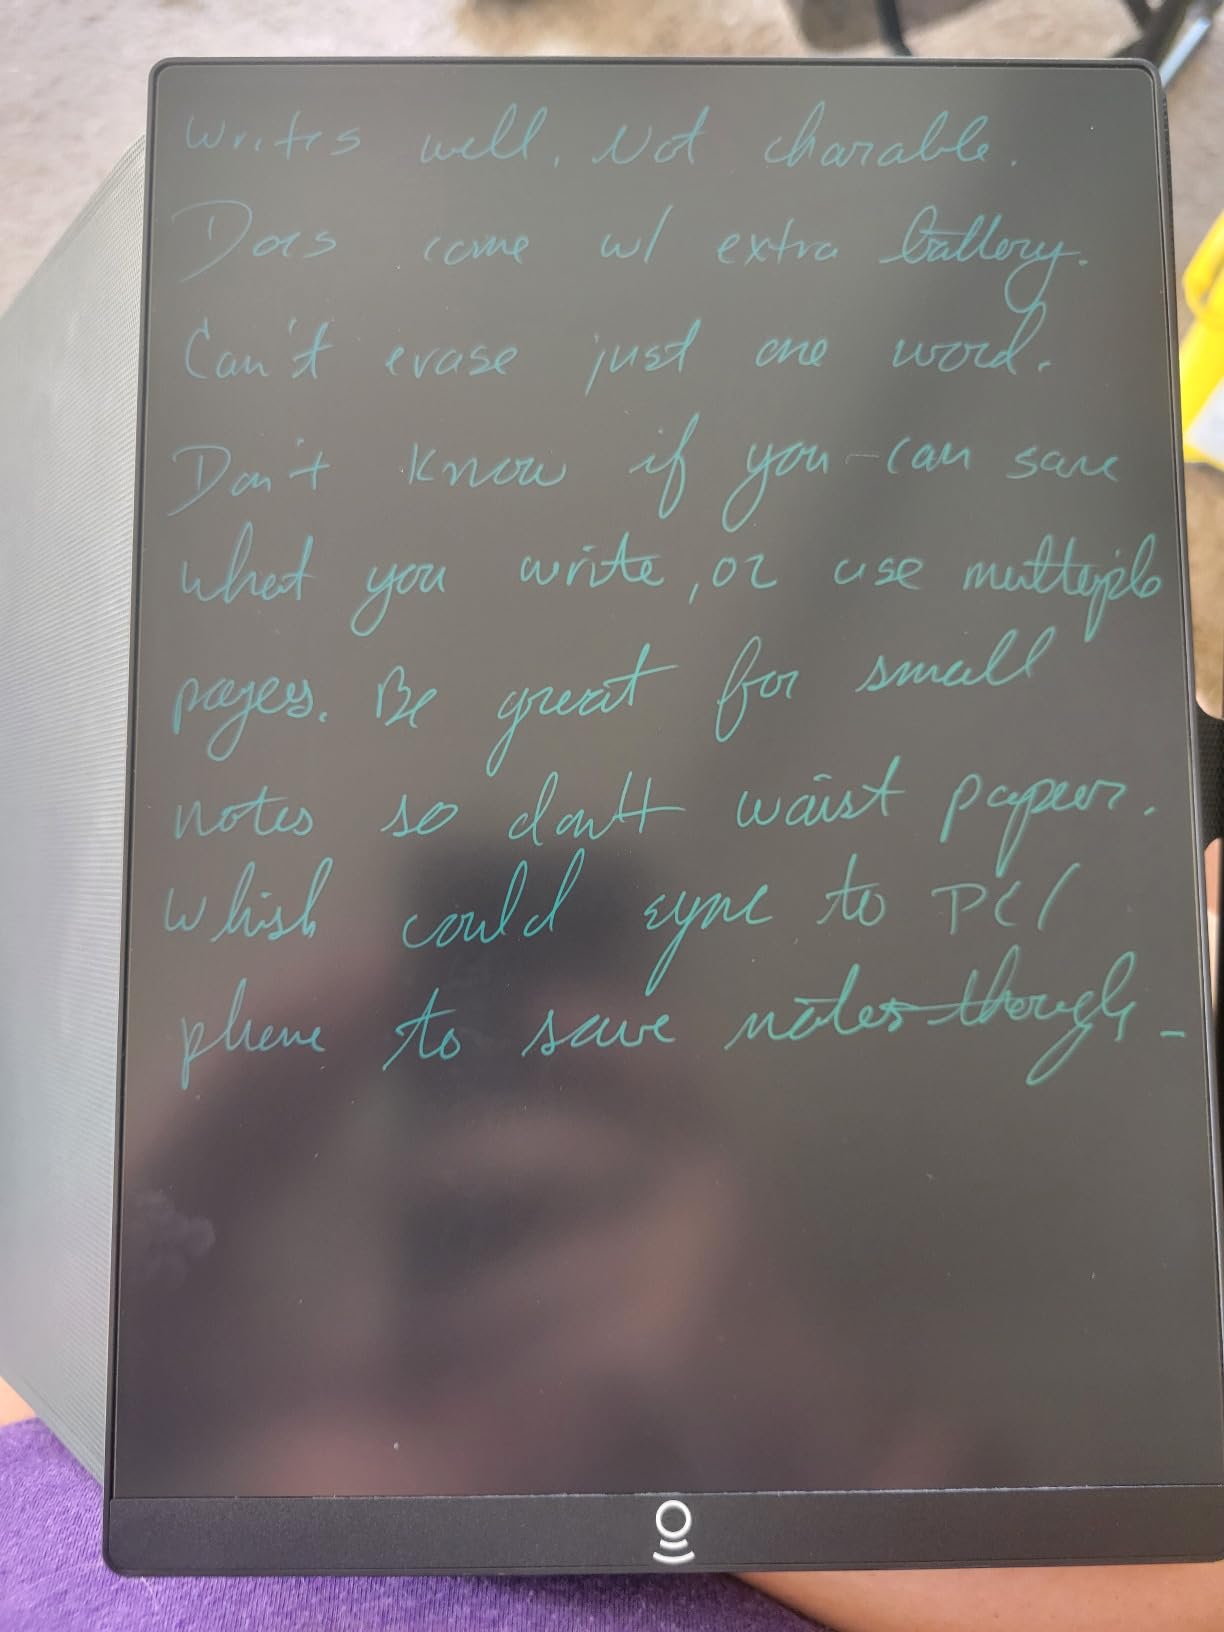 Writes well, Not charable.
Does come w/ extra battery.
Can't erase just one word.
Don't know if you can save
what you write, or use multiple
pages. Be great for small
notes so don't waist paper.
Whish could sync to PC/
phone to save notes though.